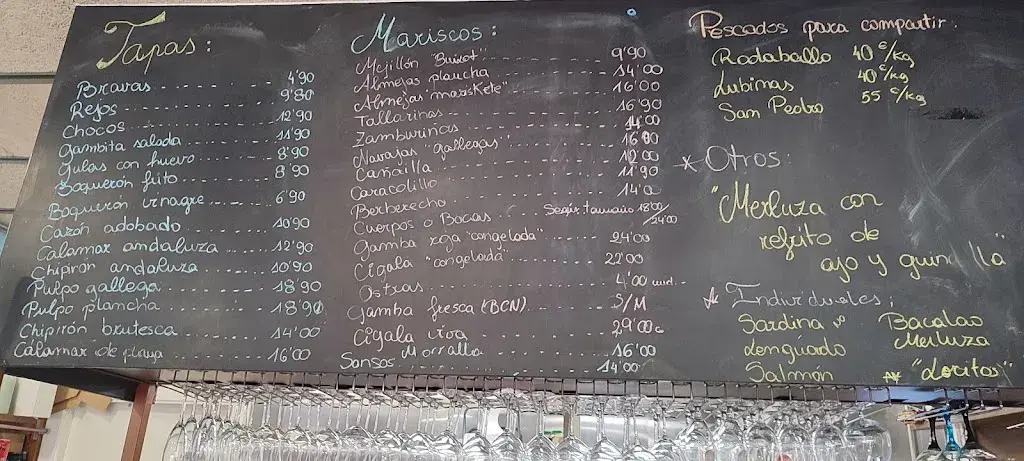 Tapas:
Bravas 4'90
Rejos 9'80
Chocos 12'90
Gambita salada 11'90
Gulas con huevo 8'90
Boquerón frito 8'90
Boquerón vinagre 6'90
Cazón adobado 10'90
Calamar andaluza 12'90
Chipirón andaluza 10'90
Pulpo gallega 18'90
Pulpo plancha 18'90
Chipirón brutesca 14'00
Calamar de playa 16'00
Mariscos:
Mejillón "Buixot" 9'90
Almejas plancha 14'00
Almejas "marisKete" 16'00
Tallarinas 16'90
Zamburiñas 14'00
Navajas "gallegas" 16'80
Cañailla 12'00
Caracolillo 11'90
Berberecho 14'00
Cuerpos o Bocas Según tamaño 18'00/24'00
Gamba roja "congelada" 24'00
Cigala "congelada" 22'00
Ostras 4'00 und.
Gamba fresca (BCN) S/M
Cigala viva 29'00
Morralla 16'00
Sonsos 14'00
Pescados para compartir:
Rodaballo 40 €/kg
Lubinas 40 €/kg
San Pedro 55 €/kg
* Otros:
"Merluza con
refrito de
ajo y guindilla"
* Individuales:
Sardina Bacalao
Lenguado Merluza
Salmón * "Loritos"